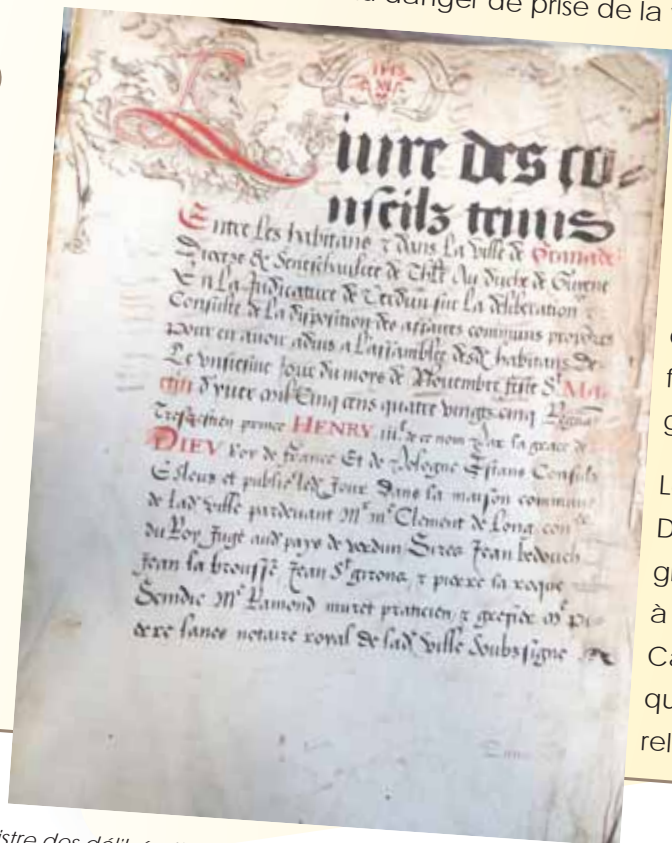 danger de prise de la
IHS
Liure des co-
nseilz tenus
Entre les habitans & dans la ville de Grenade
Diocese & Seneschaulcee de Thle Au duche de Guiene
En la Judicature de Verdun sur la deliberation
Consulte de la disposition des affaires communs
pour en auoir aduis a l'assamblee desd habitans De-
Le vnsiesme Jour du moys de Nouembre feste St Ma-
rtin d'yuer mil Cinq cens quatre vingts cinq Regna
prince HENRY iii.e de ce nom Par la grace de
DIEV Roy de france Et de Pologne Estans Consulz
Esleus et publie led Jour Dans la maison commune
de lad ville pardeuant Mr me Clement de Long con
du Roy Juge aud pays de verdun Sires Jean bedouch
Jean la brousse Jean St girons, & pierre la roque
Scindic Me Ramond muret praticien & greffier Me pi-
erre lanes notaire royal de lad ville Soubzsigne
f
g
L
D
g
à
Ca
qu
rel
istre des